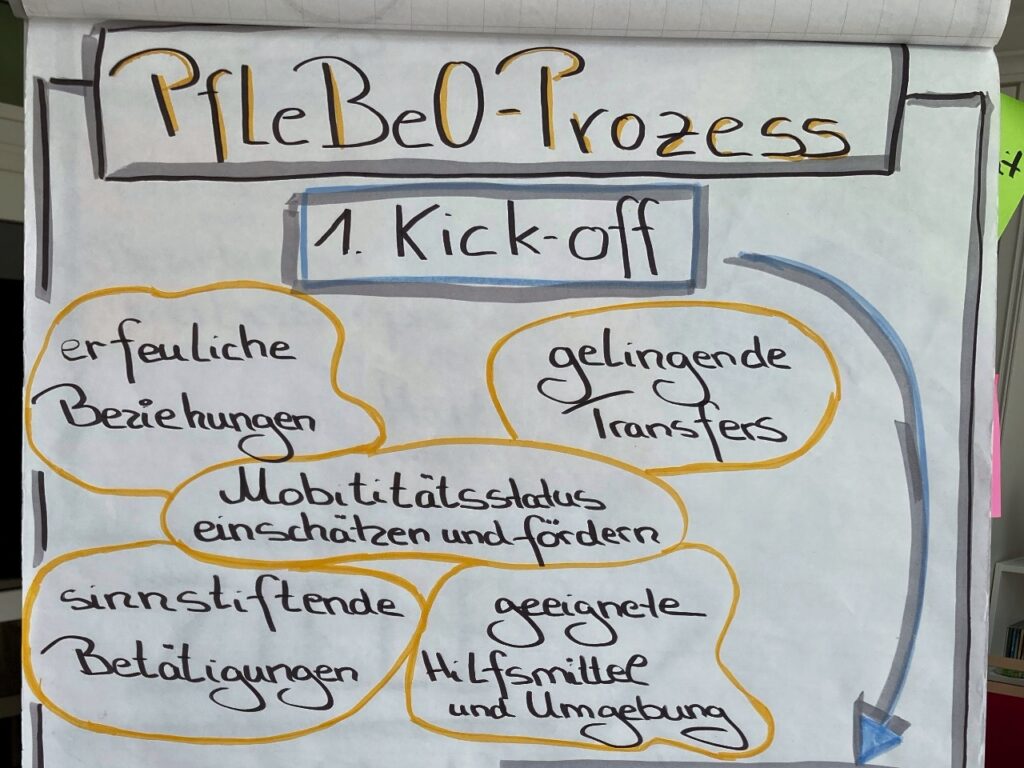 PfLeBeO-Prozess
1. Kick-off
erfeuliche
Beziehungen
gelingende
Transfers
Mobititätsstatus
einschätzen und fördern
sinnstiftende
Betätigungen
geeignete
Hilfsmittel
und Umgebung